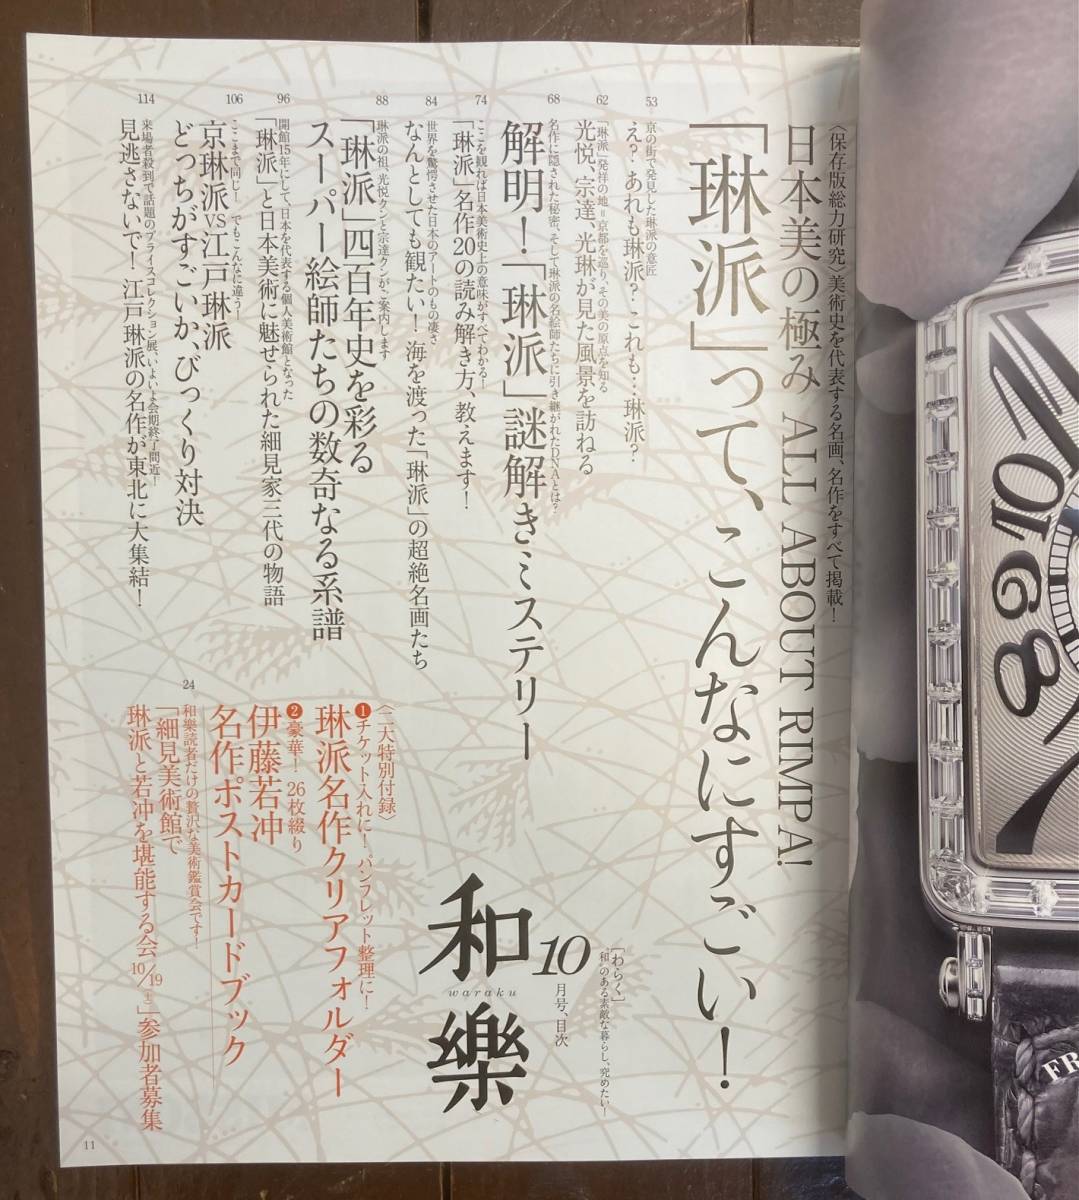 〈保存版総力研究〉美術史を代表する名画、名作をすべて掲載!
日本美の極み ALL ABOUT RIMPA!
「琳派」って、こんなにすごい!
53
京の街で発見した琳派の意匠
え?あれも琳派?これも…琳派?
62
「琳派」発祥の地=京都を巡り、その美の原点を知る
光悦、宗達、光琳が見た風景を訪ねる
68
名作に隠された秘密、そして琳派の名絵師たちに引き継がれたDNAとは?
解明!「琳派」謎解きミステリー
74
ここを観れば日本美術史上の意味がすべてわかる!
「琳派」名作20の読み解き方、教えます!
84
世界を驚愕させた日本のアートのもの凄さ
なんとしても観たい!海を渡った「琳派」の超絶名画たち
88
琳派の祖、光悦クンと宗達クンがご案内します
「琳派」四百年史を彩る
スーパー絵師たちの数奇なる系譜
96
開館15年にして、日本を代表する個人美術館となった
「琳派」と日本美術に魅せられた細見家三代の物語
106
ここまで同じ!でもこんなに違う!
京琳派VS江戸琳派
どっちがすごいか、びっくり対決
114
来場者殺到で話題のプライスコレクション展、いよいよ会期終了間近!
見逃さないで!江戸琳派の名作が東北に大集結!
[わらく]
“和”のある素敵な暮らし、究めたい!
10月号、目次
和樂
waraku
〈二大特別付録〉
❶チケット入れに!パンフレット整理に!
琳派名作クリアフォルダー
❷豪華!26枚綴り
伊藤若冲
名作ポストカードブック
24
和樂読者だけの贅沢な美術鑑賞会です!
「細見美術館で
琳派と若冲を堪能する会10/19(土)」参加者募集
11
10
9
8
FR